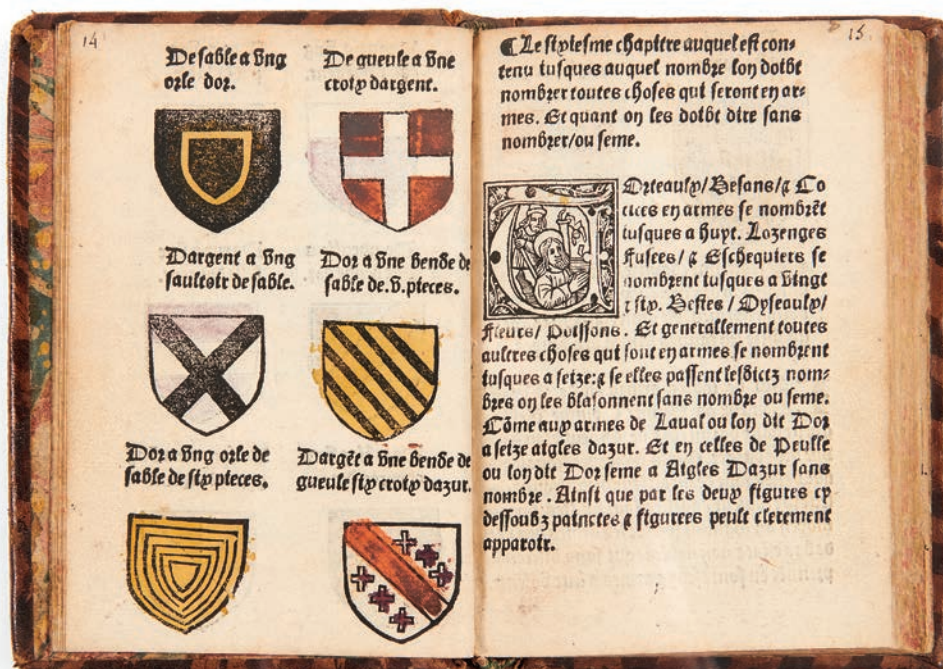 14
De sable a vng
orle dor.
De gueule a vne
croix dargent.
Dargent a vng
saultoir de sable.
Dor a vne bende de
sable de.v.pieces.
Dor a vng orle de
sable de six pieces.
Dargēt a vne bende de
gueule six croix dazur.
15.
¶ Le sixiesme chapitre auquel est con⸗
tenu iusques auquel nombre lon doibt
nombrer toutes choses qui seront en ar⸗
mes. Et quant on les doibt dire sans
nombrer/ou seme.
TOrteaulx/Besans/⁊ Co
tices en armes se nombrēt
iusques a huyt. Lozenges
fusees/⁊ Eschequiers se
nombrent iusques a vingt
⁊ six. Bestes / Oyseaulx/
fleurs/ Poissons. Et generallement toutes
aultres choses qui sont en armes se nombrent
iusques a seize:⁊ se elles passent lesdictz nom⸗
bres on les blasonnent sans nombre ou seme.
Cōme aux armes de Laual ou lon dit Dor
a seize aigles dazur. Et en celles de Peulle
ou lon dit Dor seme a Aigles Dazur sans
nombre. Ainsi que par les deux figures cy
dessoubz painctes ⁊ figurees peult clerement
apparoir.